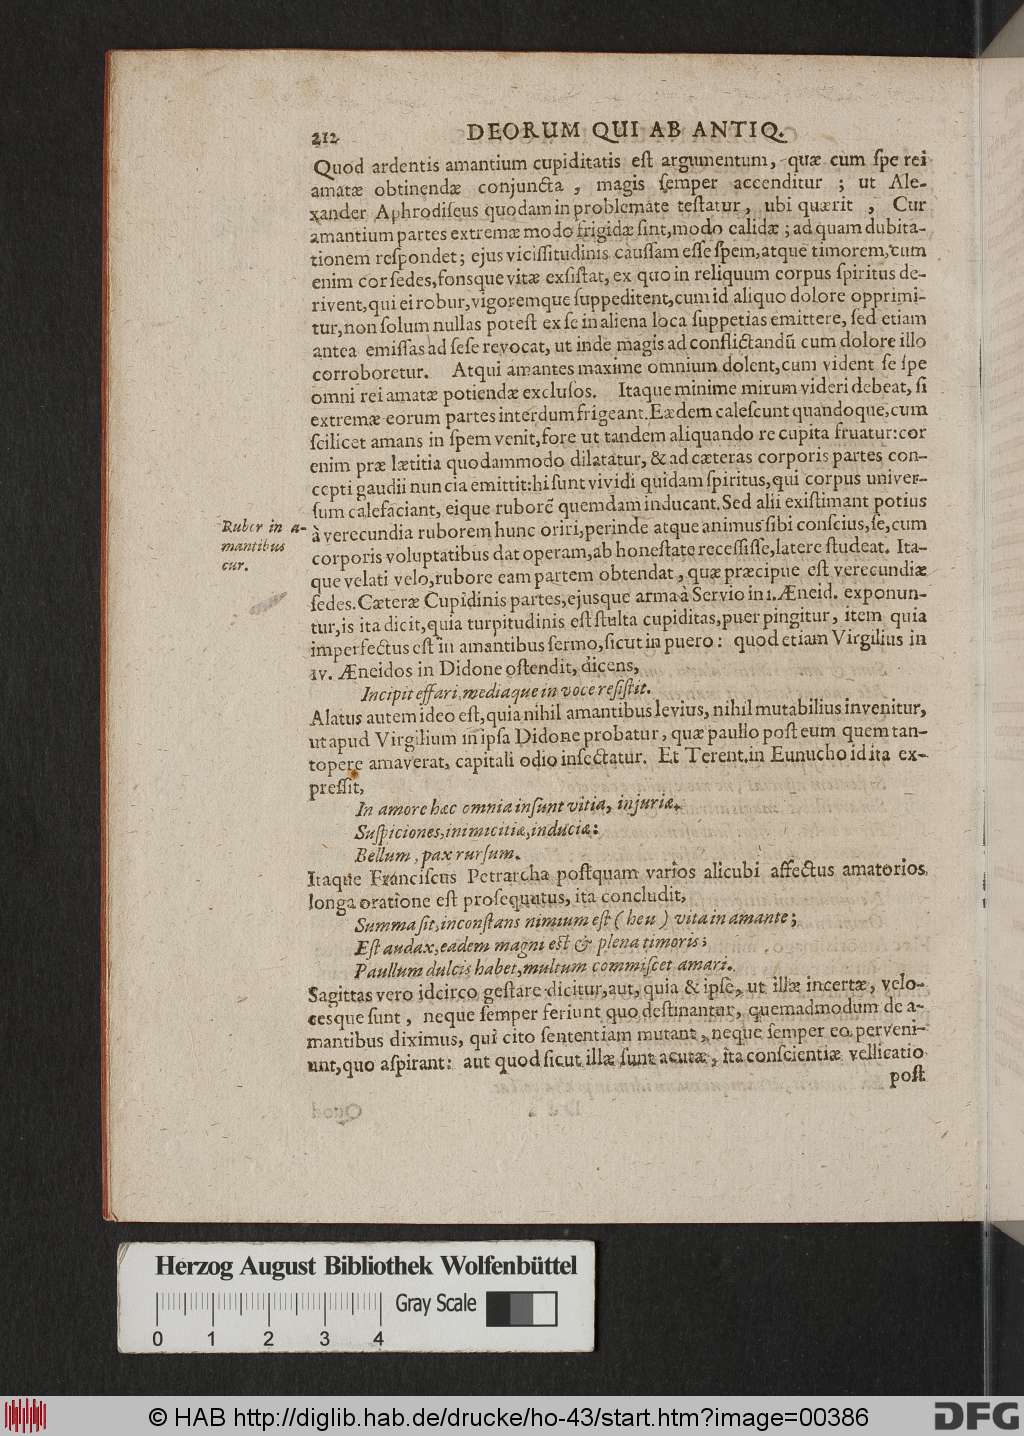 212 DEORUM QUI AB ANTIQ.
Quod ardentis amantium cupiditatis eſt argumentum, quæ cum ſpe rei
amatæ obtinendæ conjuncta, magis ſemper accenditur; ut Ale-
xander Aphrodiſeus quodam in problemate teſtatur, ubi quærit, Cur
amantium partes extremæ modo frigidæ ſint, modo calidæ; ad quam dubita-
tionem reſpondet; ejus viciſſitudinis cauſſam eſſe ſpem, atque timorem, cum
enim cor ſedes, fonsque vitæ exſiſtat, ex quo in reliquum corpus ſpiritus de-
rivent, qui ei robur, vigoremque ſuppeditent, cum id aliquo dolore opprimi-
tur, non ſolum nullas poteſt ex ſe in aliena loca ſuppetias emittere, ſed etiam
antea emiſſas ad ſeſe revocat, ut inde magis ad conflictandū cum dolore illo
corroboretur. Atqui amantes maxime omnium dolent, cum vident ſe ſpe
omni rei amatæ potiendæ excluſos. Itaque minime mirum videri debeat, ſi
extremæ eorum partes interdum frigeant. Eædem caleſcunt quandoque, cum
ſcilicet amans in ſpem venit, fore ut tandem aliquando re cupita fruatur: cor
enim præ lætitia quodammodo dilatatur, & ad cæteras corporis partes con-
cepti gaudii nuncia emittit: hi ſunt vividi quidam ſpiritus, qui corpus univer-
ſum calefaciant, eique ruborē quemdam inducant. Sed alii exiſtimant potius
à verecundia ruborem hunc oriri, perinde atque animus ſibi conſcius, ſe, cum
corporis voluptatibus dat operam, ab honeſtate receſſiſſe, latere ſtudeat. Ita-
que velati velo, rubore eam partem obtendat, quæ præcipue eſt verecundiæ
ſedes. Cæteræ Cupidinis partes, ejusque arma à Servio in 1. Æneid. exponun-
tur, is ita dicit, quia turpitudinis eſt ſtulta cupiditas, puer pingitur, item quia
imperfectus eſt in amantibus ſermo, ſicut in puero: quod etiam Virgilius in
IV. Æneidos in Didone oſtendit, dicens,
Incipit effari, mediaque in voce reſiſtit.
Alatus autem ideo eſt, quia nihil amantibus levius, nihil mutabilius invenitur,
ut apud Virgilium in ipſa Didone probatur, quæ paullo poſt eum quem tan-
topere amaverat, capitali odio inſectatur. Et Terent. in Eunucho id ita ex-
preſſit,
In amore hæc omnia inſunt vitia, injuriæ,
Suſpiciones, inimicitiæ, induciæ:
Bellum, pax rurſum.
Itaque Franciſcus Petrarcha poſtquam varios alicubi affectus amatorios
longa oratione eſt proſequutus, ita concludit,
Summa ſit, inconſtans nimium eſt (heu) vita in amante;
Eſt audax, eadem magni eſt & plena timoris;
Paullum dulcis habet, multum commiſcet amari.
Sagittas vero idcirco geſtare dicitur, aut, quia & ipſe, ut illæ incertæ, velo-
cesque ſunt, neque ſemper feriunt quo deſtinantur, quemadmodum de a-
mantibus diximus, qui cito ſententiam mutant, neque ſemper eo perveni-
unt, quo aſpirant: aut quod ſicut illæ ſunt acutæ, ita conſcientiæ vellicatio
poſt
Rubor in a-
mantibus
cur.
Herzog August Bibliothek Wolfenbüttel
Gray Scale
0 1 2 3 4
© HAB http://diglib.hab.de/drucke/ho-43/start.htm?image=00386
DFG